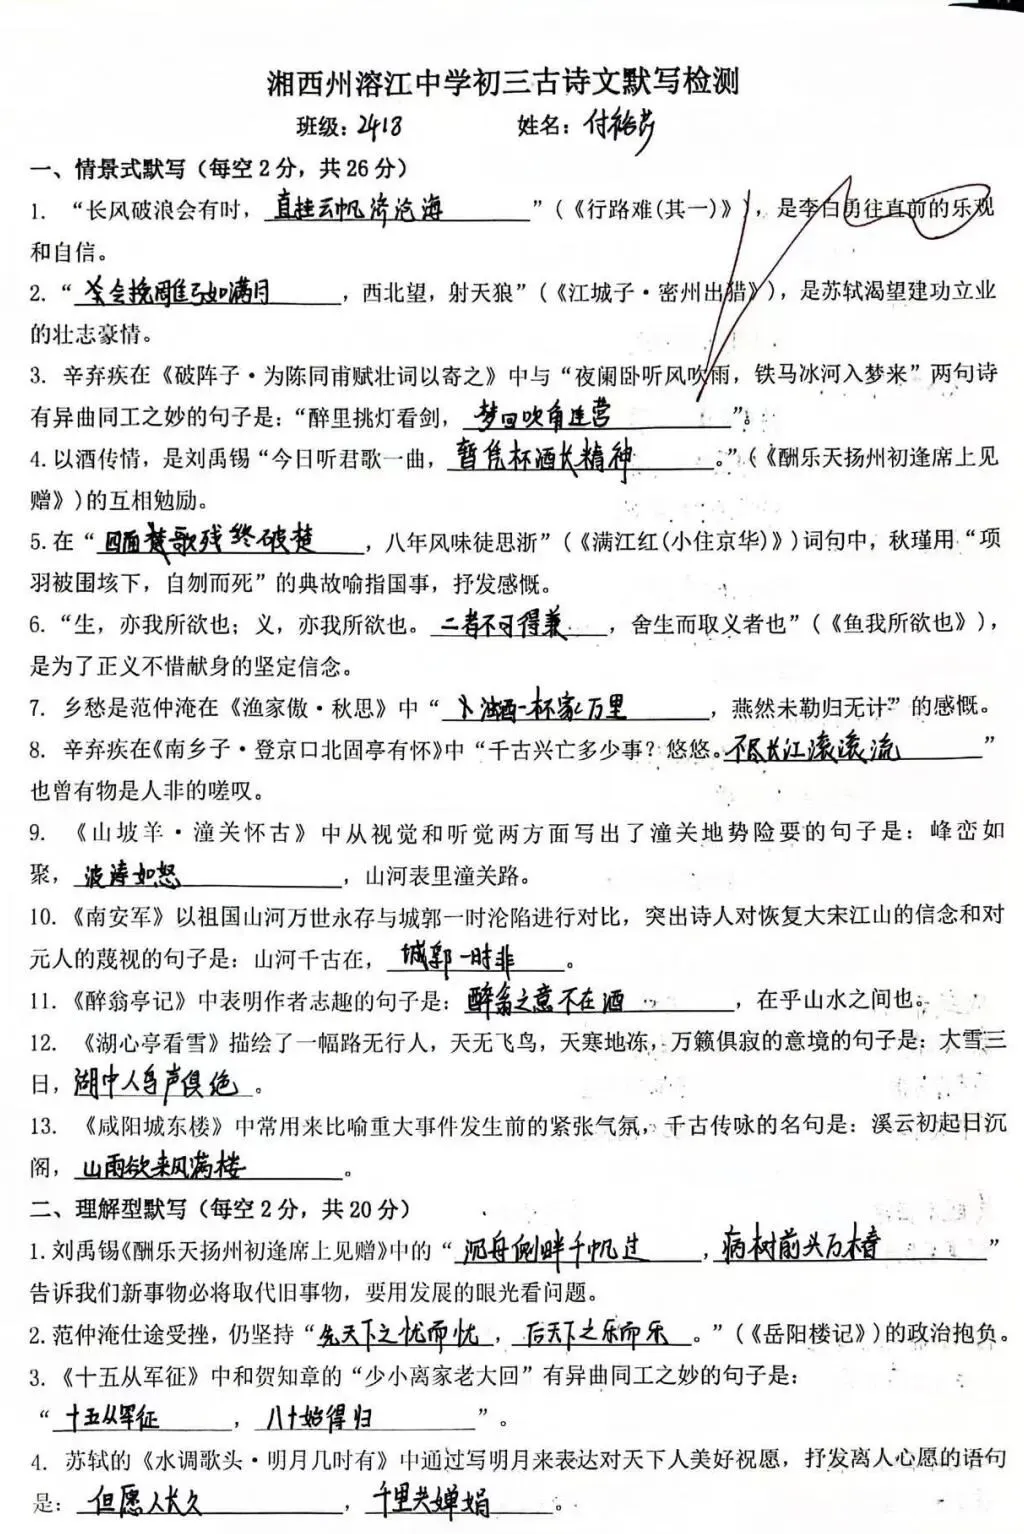 湘西州溶江中学初三古诗文默写检测
班级：2418 姓名：付
一、情景式默写（每空2分，共26分）
1. “长风破浪会有时，直挂云帆济沧海”（《行路难(其一)》），是李白勇往直前的乐观
和自信。
2. “会挽雕弓如满月，西北望，射天狼”（《江城子·密州出猎》），是苏轼渴望建功立业
的壮志豪情。
3. 辛弃疾在《破阵子·为陈同甫赋壮词以寄之》中与“夜阑卧听风吹雨，铁马冰河入梦来”两句诗
有异曲同工之妙的句子是：“醉里挑灯看剑，梦回吹角连营”。
4.以酒传情，是刘禹锡“今日听君歌一曲，暂凭杯酒长精神。”（《酬乐天扬州初逢席上见
赠》)的互相勉励。
5.在“四面楚歌残终破楚，八年风味徒思浙”（《满江红(小住京华)》)词句中，秋瑾用“项
羽被围垓下，自刎而死”的典故喻指国事，抒发感慨。
6.“生，亦我所欲也；义，亦我所欲也。二者不可得兼，舍生而取义者也”（《鱼我所欲也》），
是为了正义不惜献身的坚定信念。
7. 乡愁是范仲淹在《渔家傲·秋思》中“卜浊酒一杯家万里，燕然未勒归无计”的感慨。
8. 辛弃疾在《南乡子·登京口北固亭有怀》中“千古兴亡多少事？悠悠。不尽长江滚滚流”
也曾有物是人非的嗟叹。
9. 《山坡羊·潼关怀古》中从视觉和听觉两方面写出了潼关地势险要的句子是：峰峦如
聚，波涛如怒，山河表里潼关路。
10.《南安军》以祖国山河万世永存与城郭一时沦陷进行对比，突出诗人对恢复大宋江山的信念和对
元人的蔑视的句子是：山河千古在，城郭一时非。
11.《醉翁亭记》中表明作者志趣的句子是：醉翁之意不在酒，在乎山水之间也。
12. 《湖心亭看雪》描绘了一幅路无行人，天无飞鸟，天寒地冻，万籁俱寂的意境的句子是：大雪三
日，湖中人鸟声俱绝。
13. 《咸阳城东楼》中常用来比喻重大事件发生前的紧张气氛，千古传咏的名句是：溪云初起日沉
阁，山雨欲来风满楼。
二、理解型默写（每空2分，共20分）
1.刘禹锡《酬乐天扬州初逢席上见赠》中的“沉舟侧畔千帆过，病树前头万木春”
告诉我们新事物必将取代旧事物，要用发展的眼光看问题。
2.范仲淹仕途受挫，仍坚持“先天下之忧而忧，后天下之乐而乐。”（《岳阳楼记》)的政治抱负。
3.《十五从军征》中和贺知章的“少小离家老大回”有异曲同工之妙的句子是：
“十五从军征，八十始得归”。
4. 苏轼的《水调歌头·明月几时有》中通过写明月来表达对天下人美好祝愿，抒发离人心愿的语句
是：但愿人长久，千里共婵娟。